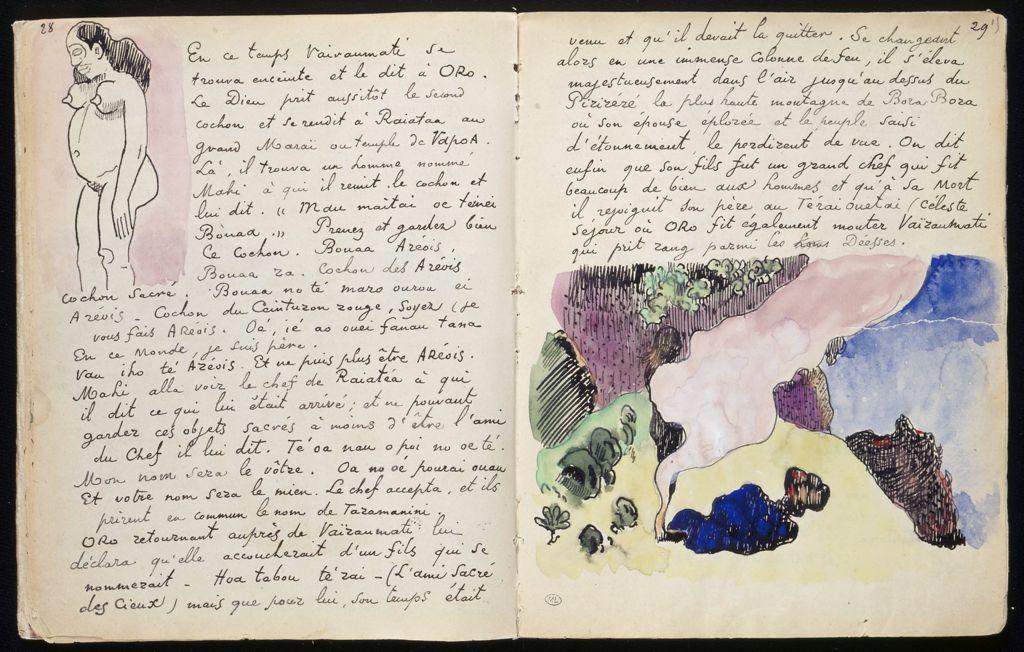 28
En ce temps Vaïraumati se
trouva enceinte et le dit à ORo.
Le Dieu prit aussitôt le second
cochon et se rendit à Raiataa au
grand Maraï ou temple de VapoA.
Là, il trouva un homme nommé
Mahi à qui il remit le cochon et
lui dit. " Mau maitai oe teinei
Bouaa. " Prenez et gardez bien
Ce Cochon. Bouaa Areois,
Bouaa ra. Cochon des Aréois
Cochon Sacré. Bouaa no té maro ourou ei
Areois - Cochon du Ceinturon rouge, Soyez (je
vous fais ARéois. Oa, ié ao ouei fanau tana
En ce Monde, je suis père.
vau iho té Aréois. Et ne puis plus être ARéois.
Mahi alla voir le chef de Raiatéa à qui
il dit ce qui lui était arrivé; et ne pouvant
garder ces objets sacrés à moins d'être l'ami
du Chef il lui dit. Té oa nau o poi no oe té.
Mon nom sera le vôtre. Oa no oe pourai ouau
Et votre nom sera le mien. Le chef accepta, et ils
prirent en commun le nom de Taramanini.
ORo retournant auprès de Vaïraumati lui
déclara qu'elle accoucherait d'un fils qui se
nommerait - Hoa tabou té rai - (L'ami Sacré
des Cieux) mais que pour lui, son temps était
29
venu et qu'il devait la quitter. Se changeant
alors en une immense Colonne de feu, il s'éleva
majestueusement dans l'air jusqu'au dessus du
Pirireré la plus haute montagne de Bora Bora
où son épouse eplorée et le peuple saisi
d'étonnement le perdirent de vue. On dit
enfin que son fils fut un grand chef qui fit
beaucoup de bien aux hommes et qu'à sa Mort
il rejoignit son père au Téraï ouetai (Céleste
Séjour où ORo fit également monter Vaïraumati
qui prit rang parmi les Déesses.